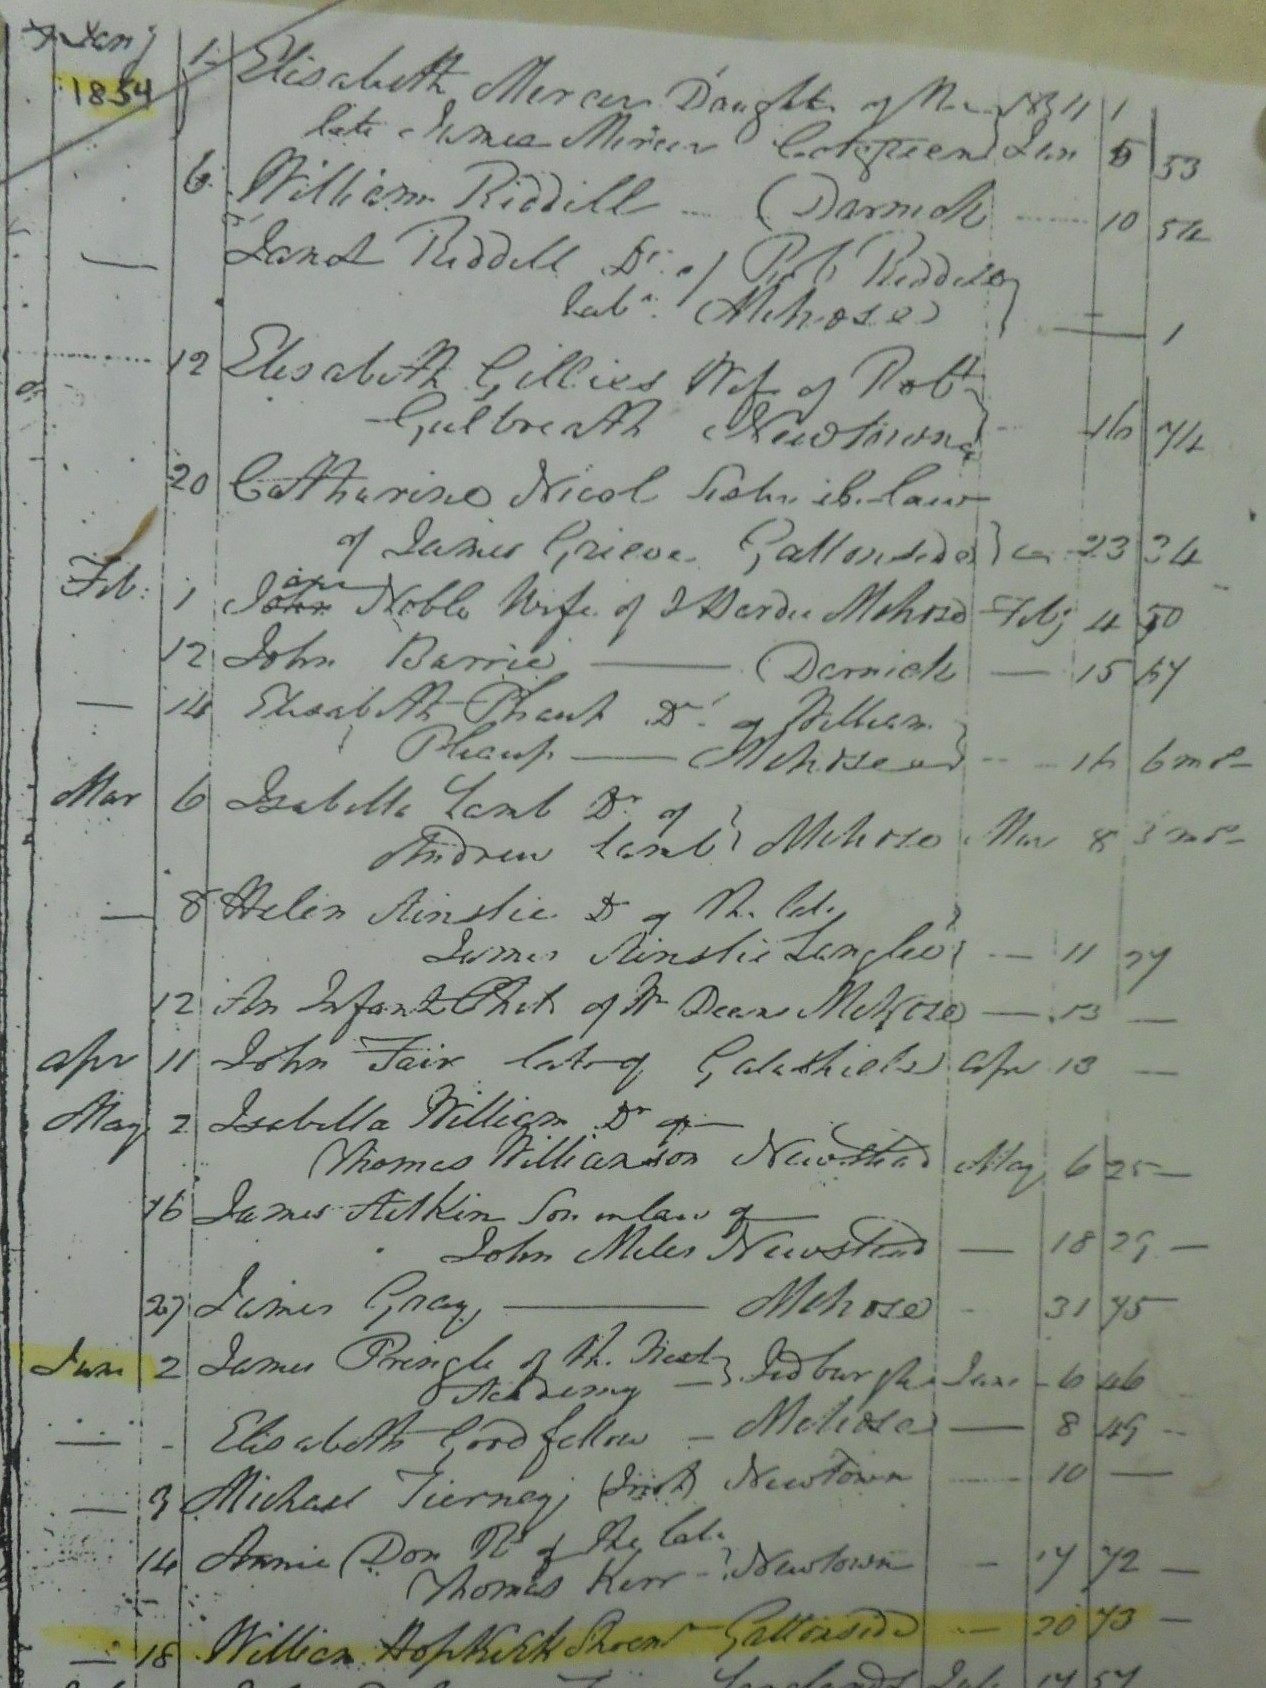 Jany 1 Elisabeth Mercer Daughtr of the 1
1854 late James Mercer Jan 5 53
6 William Riddell (Darnick 10 54
Janet Riddell Dr. of Rob Riddell
Labr. Melrose) 1
12 Elisabeth Gillies Wife of Robt
Gulbreath Newtown 16 74
20 Catharine Nicol Sister in law
of James Grieve Gattonside 23 34
Feb: 1 Jane Noble Wife of J Hardie Melrose Feby 4 50
12 John Barrie — Darnick — 15 57
— 14 Elisabeth Phaup Dr. of William
Phaup — Melrose 16 6 mos
Mar 6 Isabella Lamb Dr of
Andrew Lamb Melrose Mar 8 3 mos
— 8 Helen Ainslie Dr of th. late
James Ainslie Langlee — 11 27
12 An Infant Child of Wm Deans Melrose — 13 —
Apr 11 John Fair late of Galashiels Apr 13 —
May 2 Isabella William Dr of —
Thomas Williamson Newstead May 6 25 —
16 James Aitkin Son in law of —
John Miles Newstead — 18 29 —
27 James Gray, — Melrose - 31 75
June 2 James Pringle of th. Nest
Academy — Jedburgh June 6 46
— - Elisabeth Goodfellow - Melrose — 8 49 --
— 3 Michael Tierney (Irish) Newtown 10 —
14 Annie Don Rt of the late
Thomas Kerr - Newtown - 17 72 —
— 18 William Hopkirk Shoemr Gattonside -- 20 73 —
17 57